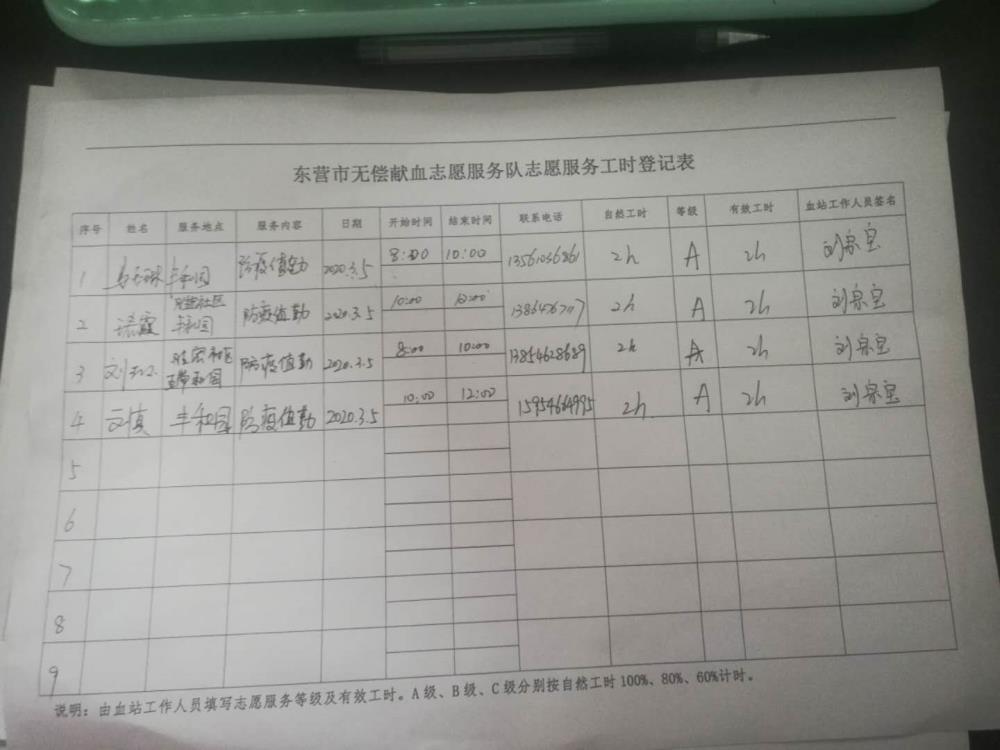 东营市无偿献血志愿服务队志愿服务工时登记表
序号 姓名 服务地点 服务内容 日期 开始时间 结束时间 联系电话 自然工时 等级 有效工时 血站工作人员签名
1 丰和园 防疫值勤 2020.3.5 8:00 10:00 13561036861 2h A 2h
2 霞 社区 丰和园 防疫值勤 2020.3.5 10:00 2h A 2h
3 刘 防疫值勤 2020.3.5 8:00 10:00 13854628689 2h A 2h
4 丰和园 防疫值勤 2020.3.5 10:00 12:00 15954664995 2h A 2h
5
6
7
8
9
说明：由血站工作人员填写志愿服务等级及有效工时。A级、B级、C级分别按自然工时100%、80%、60%计时。